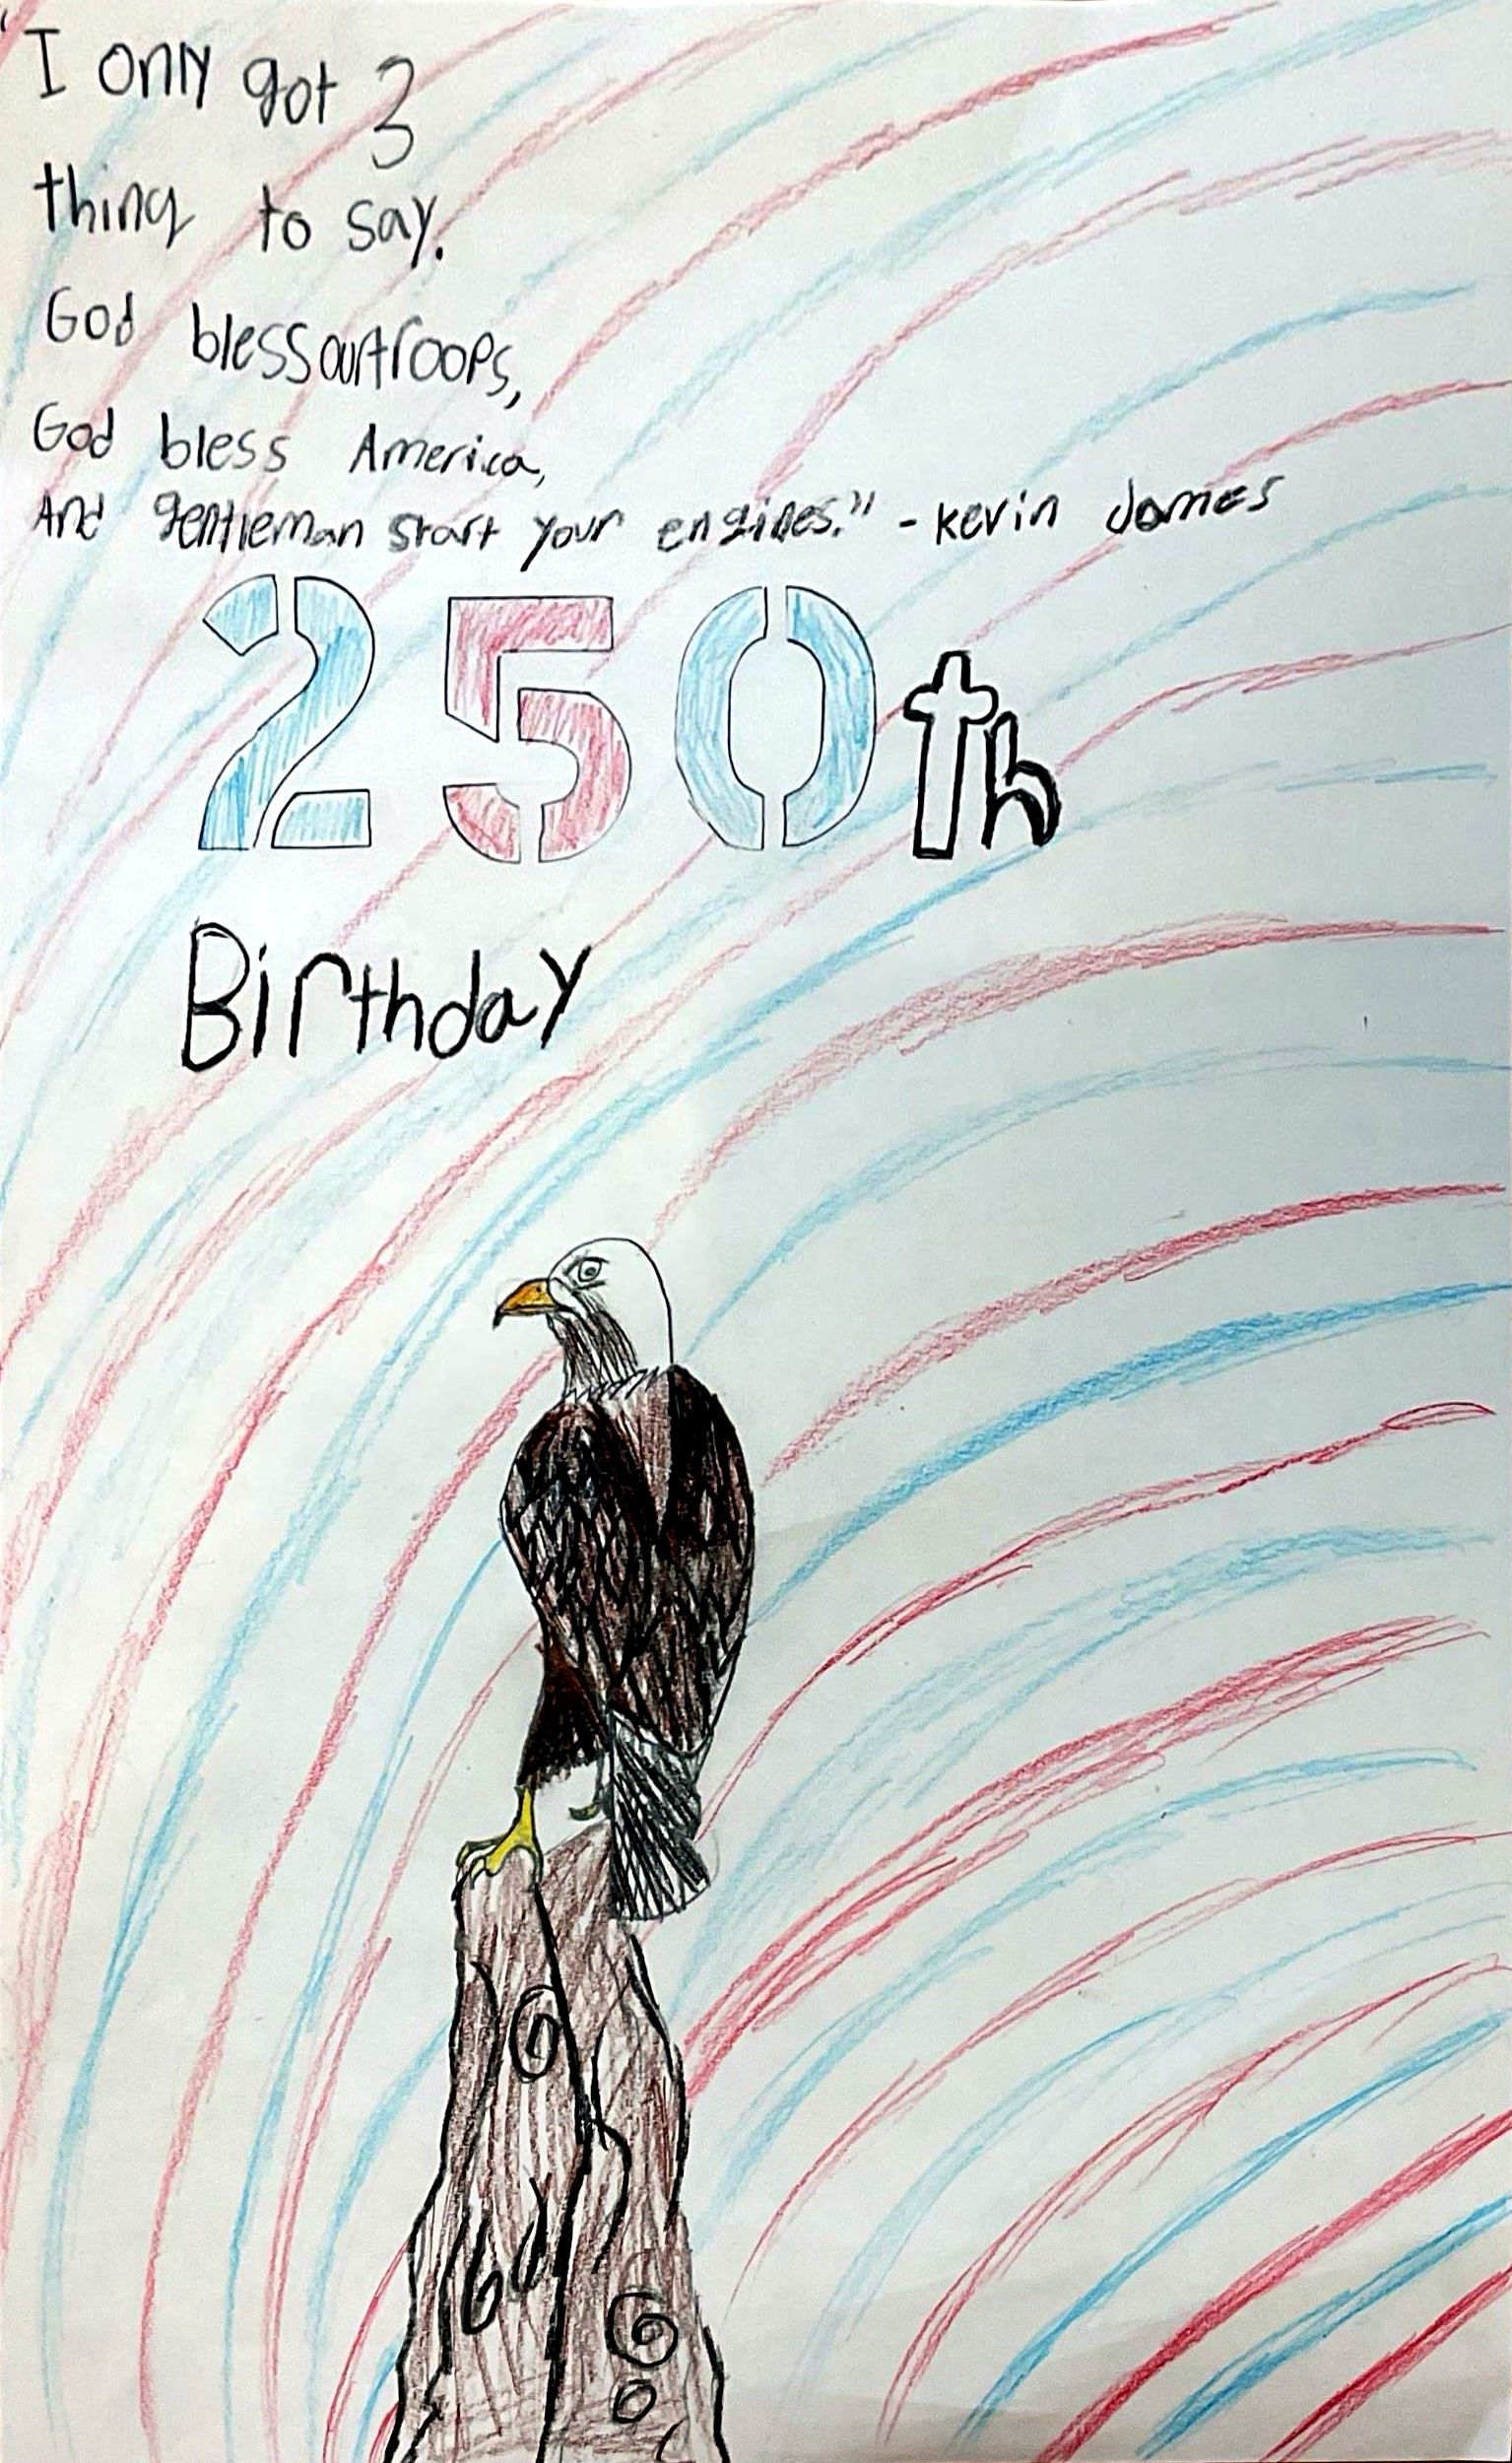 "I only got 3
thing to say.
God bless our troops,
God bless America,
And gentleman start your engines." - Kevin James
250th
Birthday